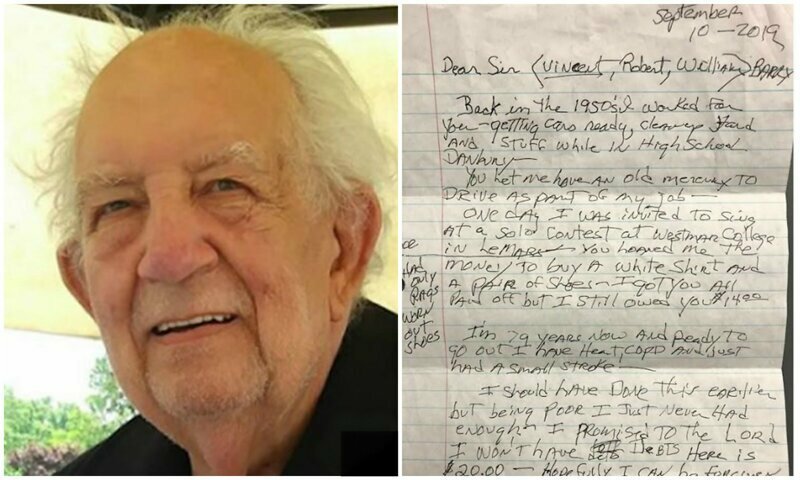 September
10-2019
Dear Sir (Vincent, Robert, William) BARRY
Back in the 1950's I worked for
you - getting cars ready, cleanup yard
AND STUFF while in High School
DANBURY -
You let me have AN old mercury to
DRIVE AS PART OF my job -
ONE day I was invited to sing
at a solo contest at Westmar College
in LeMars - You loaned me the
money TO buy A white shirt AND
A PAIR of Shoes - I got you All
PAID off but I still owed you $14.00
HAD
only
RAGS
WORN
OUT
SHOES
I'm 79 years now AND ready TO
go out I have Heart, COPD AND just
HAD A small stroke -
I should have Done this earlier
but being poor I Just Never HAD
enough - I promised TO the LORD
I won't have DeBTS Here is
$20.00 - Hopefully I can be forgiven